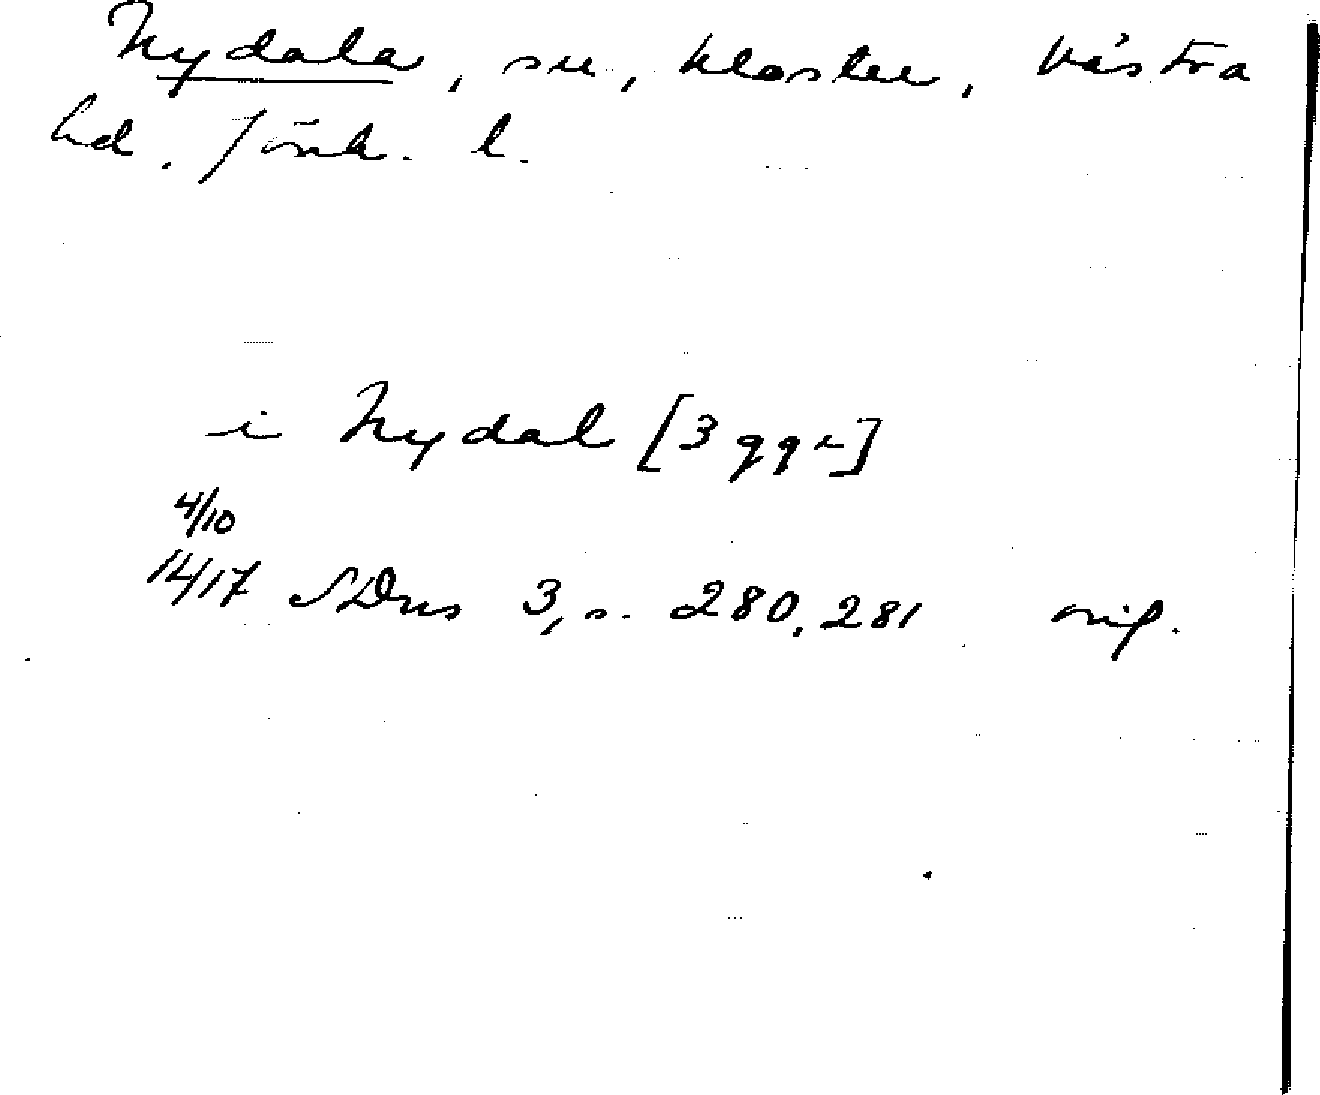 Nydala, sn, kloster, Västra
hd. Jönk. l.
i Nydal [3 ggr]
4/10
1417 SDns 3, s. 280, 281 orig.